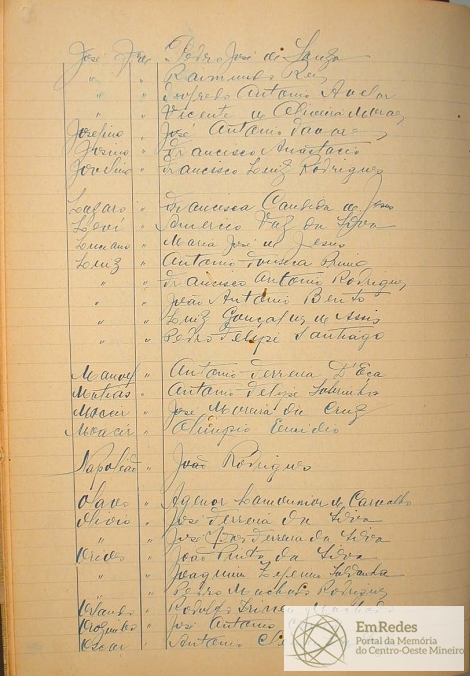 José " Pedro José de Souza
" " Raimundo Reis
" " Antonio
" " Vicente de Oliveira Moraes
Josefino " José Antonio Tavares
" Francisco Anastacio
Jovelino " Francisco Luiz Rodrigues
Lazaro " Francisca Candida de Jesus
Levi " Americo Vaz da Silva
Luciano " Maria José de Jesus
Luiz " Antonio Fonseca
" " Francisco Antonio Rodrigues
" " João Antonio Bento
" " Luiz Gonçalves de Assis
" " Pedro Felipe Santiago
Manoel " Antonio Ferreira D'Eça
Matias " Antonio Felipe Sobrinho
Moacir " José Moreira da Cruz
Moacir " Olimpio
Napoleão " João Rodrigues
Olavo " Agenor Lamounier de Carvalho
Olivio " José Ferreira da Silva
" " José Ferreira da Silva
" João Pinto da Silva
" " Joaquim Saldanha
" " Pedro Machado Rodrigues
" Rodolfo
Orozimbo " José Antonio
Oscar " Antonio
EmRedes
Portal da Memória
do Centro-Oeste Mineiro